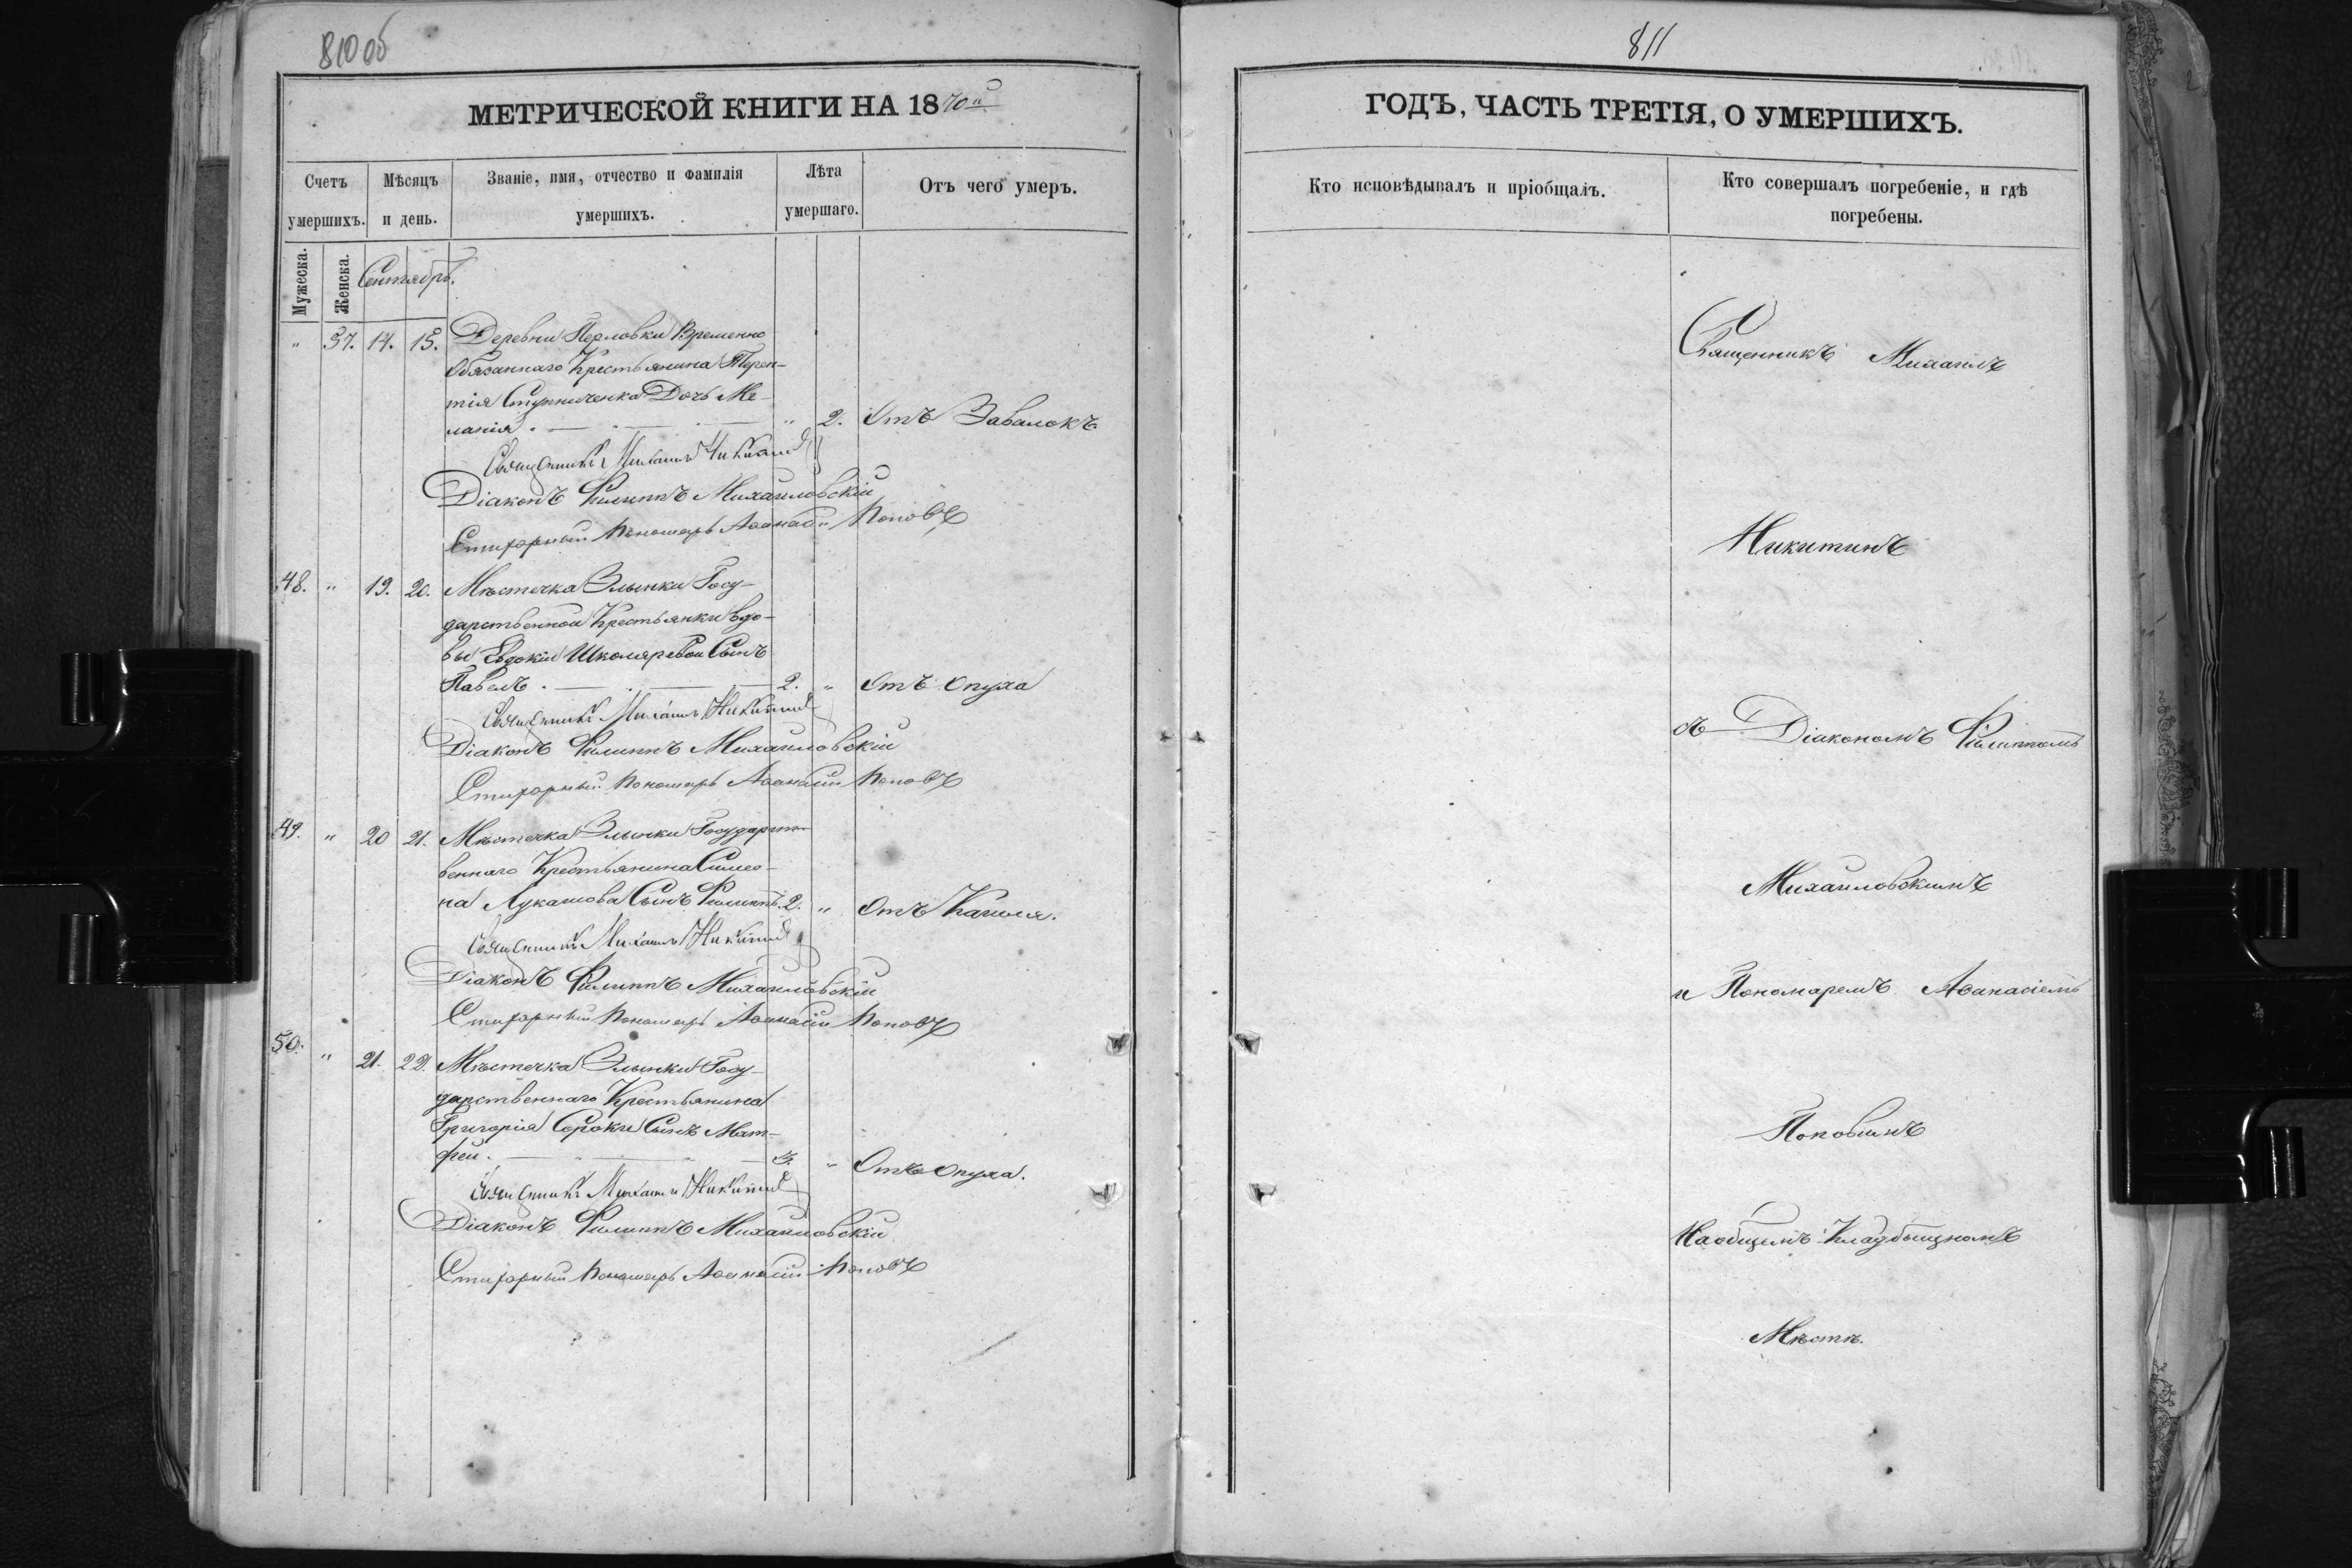 810 об
МЕТРИЧЕСКОЙ КНИГИ НА 1870й
Счетъ умершихъ.
Мѣсяцъ и день.
Званіе, имя, отчество и фамилія умершихъ.
Лѣта умершаго.
Отъ чего умеръ.
Мужеска.
Женска.
Сентябрь.
" 37. 14. 15. Деревни Перловки Временно
обязаннаго Крестьянина Терен-
тія Ступниченка Дочь Ме-
ланія. " 2. Отъ Завалокъ
Священникъ Михаилъ Никитинъ
Діаконъ Филиппъ Михайловскій
Стихарный Пономарь Аѳанасій Поповъ
48. " 19. 20. Мѣстечка Злынки Госу-
дарственной Крестьянки вдо-
вы Евдокіи Школяревой Сынъ
Павелъ. 2. " Отъ Опуха
Священникъ Михаилъ Никитинъ
Діаконъ Филиппъ Михайловскій
Стихарный Пономарь Аѳанасій Поповъ
49. " 20 21. Мѣстечка Злынки Государст-
веннаго Крестьянина Симео-
на Лукашова Сынъ Филиппъ. 2. " Отъ Кашля.
Священникъ Михаилъ Никитинъ
Діаконъ Филиппъ Михайловскій
Стихарный Пономарь Аѳанасій Поповъ
50. " 21. 22. Мѣстечка Злынки Госу-
дарственнаго Крестьянина
Григорія Сороки Сынъ Мат-
фей. 3. " Отъ Опуха.
Священникъ Михаилъ Никитинъ
Діаконъ Филиппъ Михайловскій
Стихарный Пономарь Аѳанасій Поповъ
811
ГОДЪ, ЧАСТЬ ТРЕТІЯ, О УМЕРШИХЪ.
Кто исповѣдывалъ и пріобщалъ.
Кто совершалъ погребеніе, и гдѣ
погребены.
Священникъ Михаилъ
Никитинъ
съ Діакономъ Филиппомъ
Михайловскимъ
и Пономаремъ Аѳанасіемъ
Поповымъ
На общемъ Кладбищномъ
Мѣстѣ.